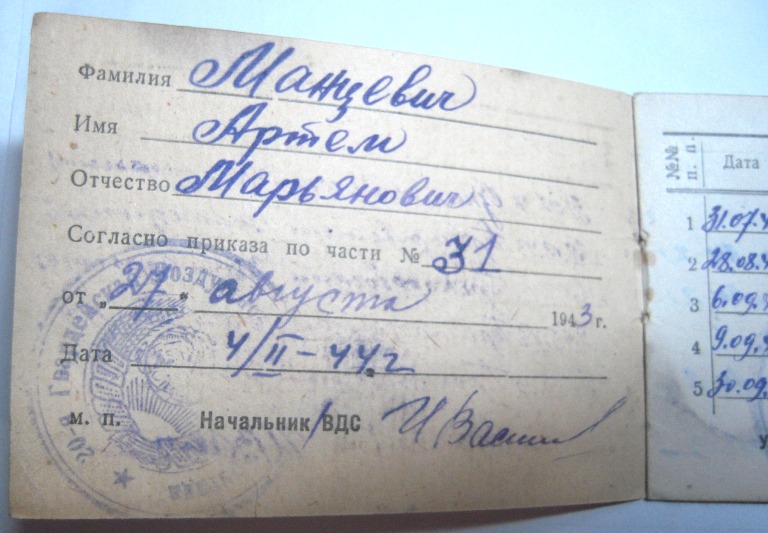 Фамилия Манцевич
Имя Артем
Отчество Марьянович
Согласно приказа по части № 31
от „27" августа 1943 г.
Дата 4/II-44 г
м. п. Начальник ВДС
20-й Гвардейской Воздуш
№№ п. п. Дата
1 31.07.4
2 28.08.4
3 6.09.4
4 9.09.4
5 30.09.
У